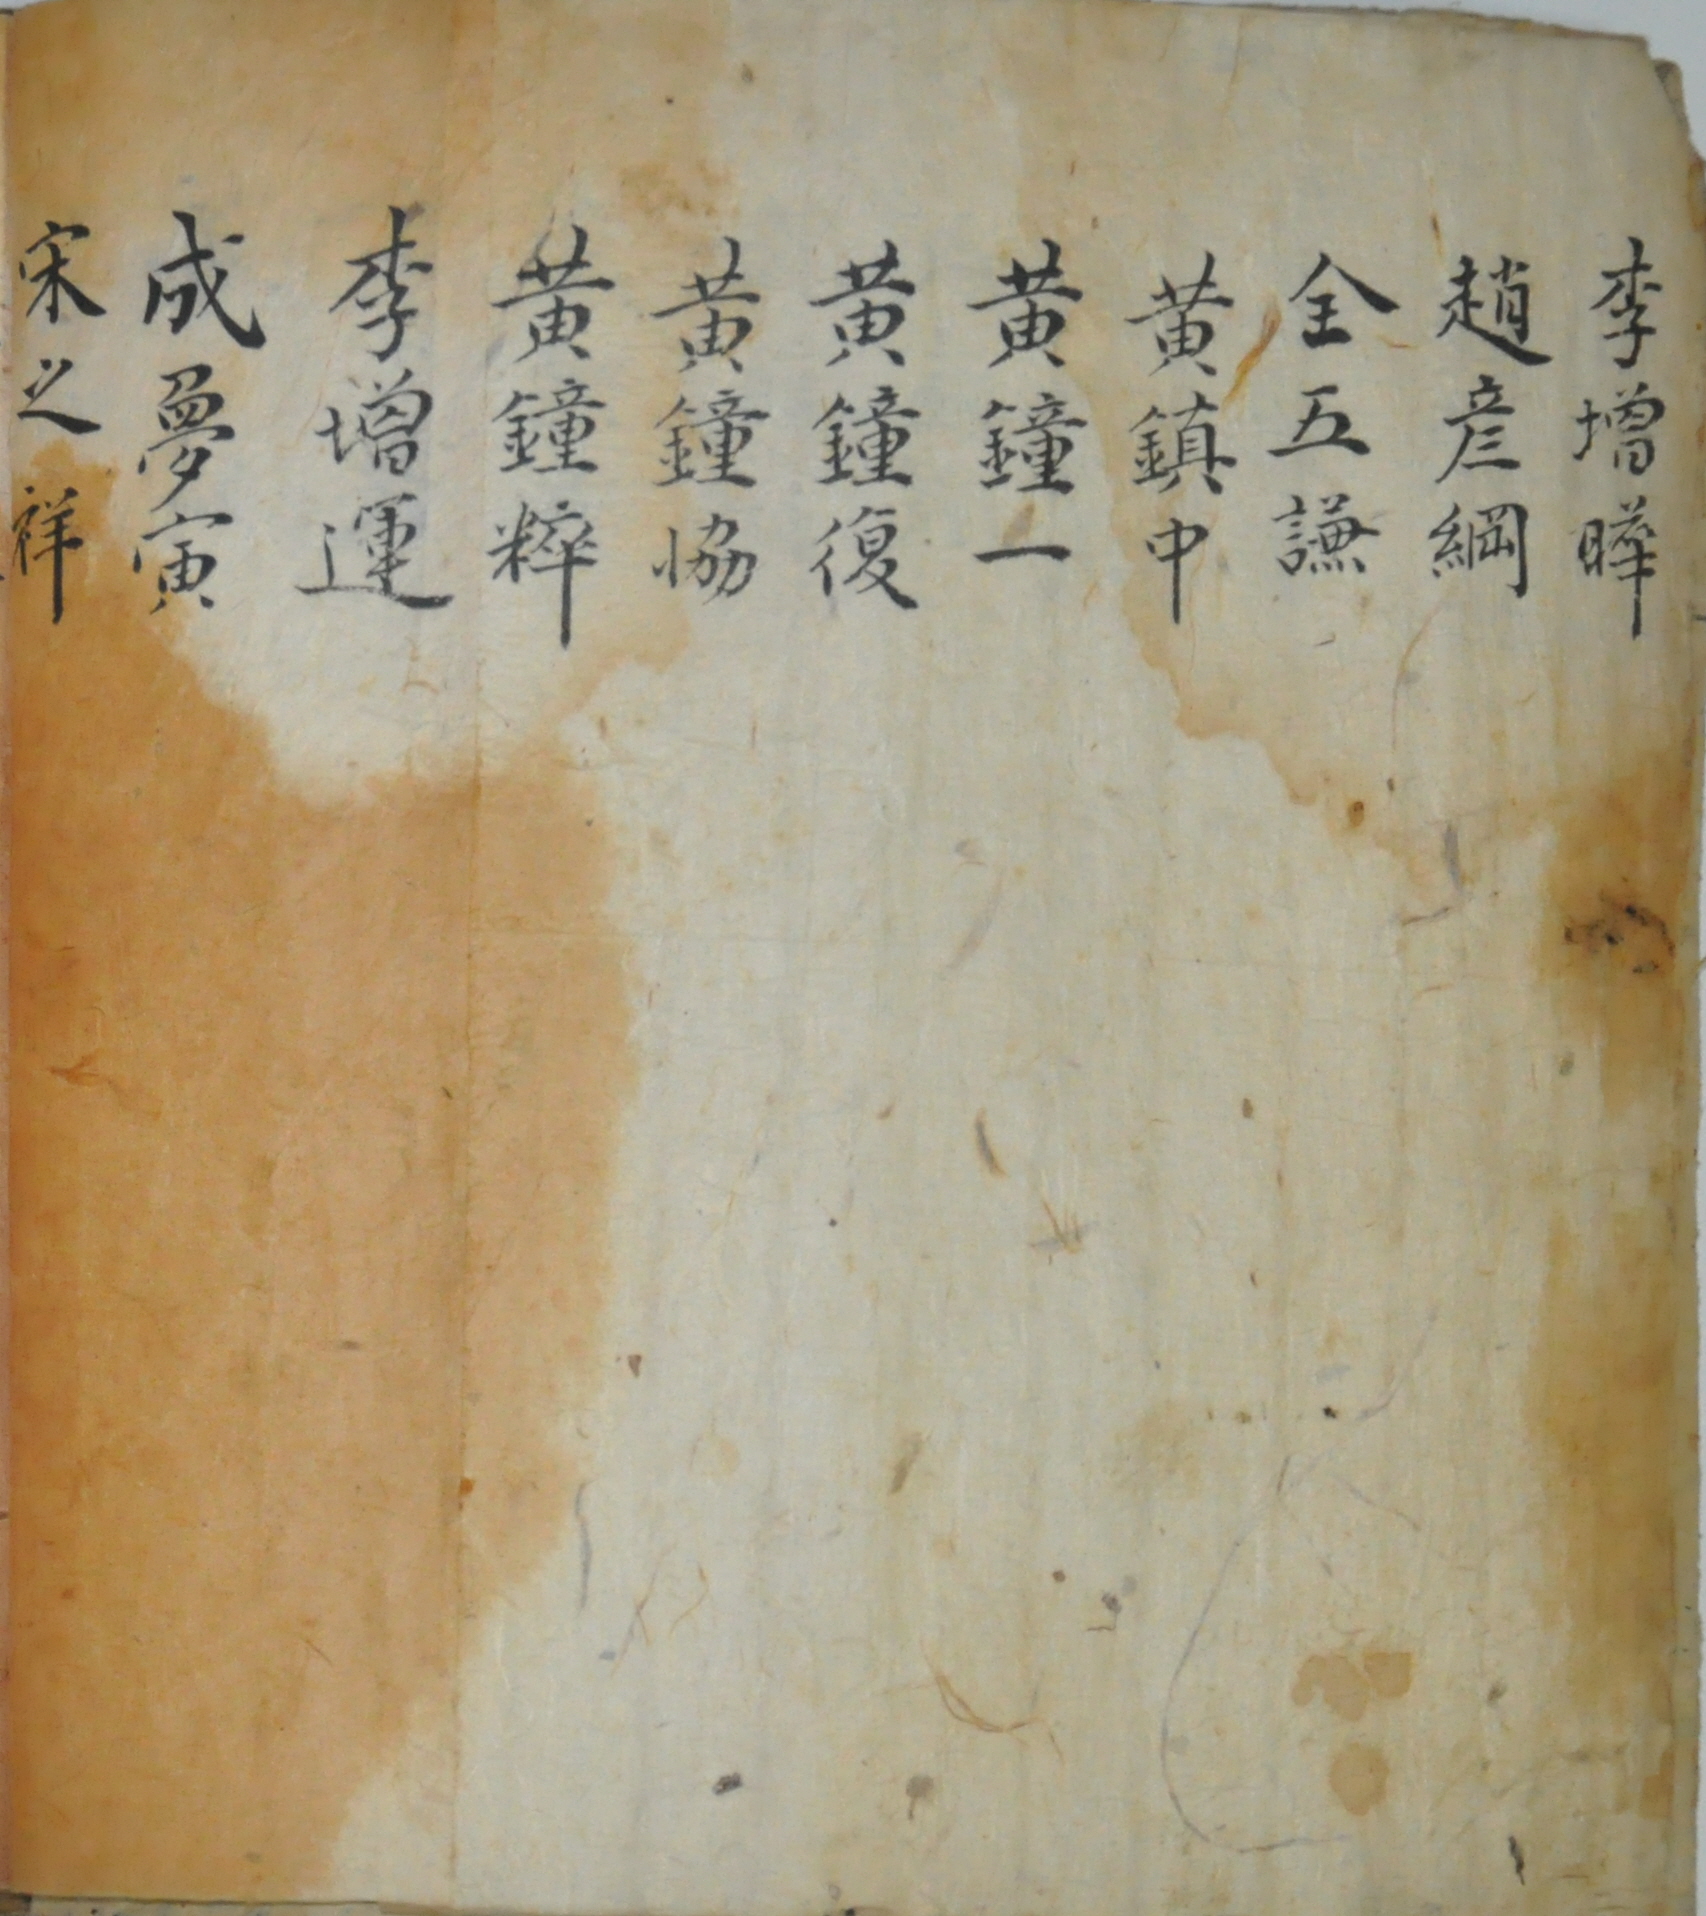 李增曄
趙彦綱
全五謙
黃鎮中
黃鐘一
黃鐘復
黃鐘協
黃鐘粹
李增運
成夢寅
宋之祥